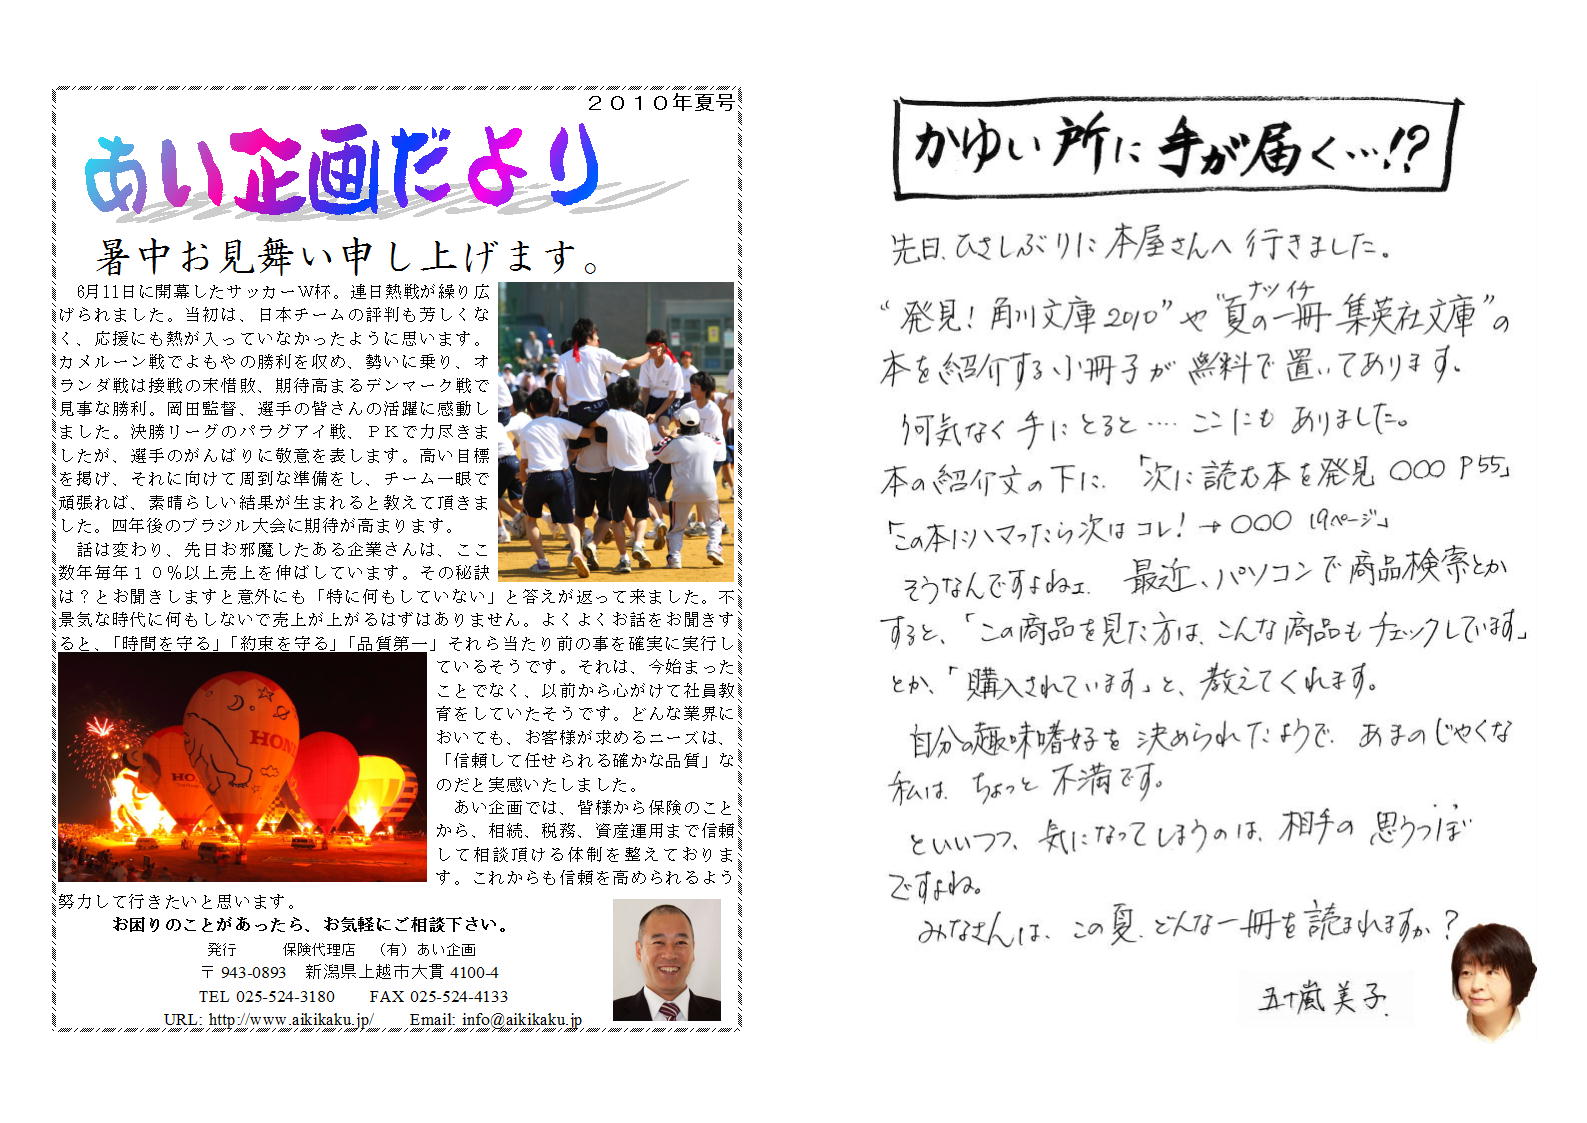 ２０１０年夏号
あい企画だより
暑中お見舞い申し上げます。
6月11日に開幕したサッカーW杯。連日熱戦が繰り広
げられました。当初は、日本チームの評判も芳しくな
く、応援にも熱が入っていなかったように思います。
カメルーン戦でよもやの勝利を収め、勢いに乗り、オ
ランダ戦は接戦の末惜敗、期待高まるデンマーク戦で
見事な勝利。岡田監督、選手の皆さんの活躍に感動し
ました。決勝リーグのパラグアイ戦、ＰＫで力尽きま
したが、選手のがんばりに敬意を表します。高い目標
を掲げ、それに向けて周到な準備をし、チーム一眼で
頑張れば、素晴らしい結果が生まれると教えて頂きま
した。四年後のブラジル大会に期待が高まります。
話は変わり、先日お邪魔したある企業さんは、ここ
数年毎年１０％以上売上を伸ばしています。その秘訣
は？とお聞きしますと意外にも「特に何もしていない」と答えが返って来ました。不
景気な時代に何もしないで売上が上がるはずはありません。よくよくお話をお聞きす
ると、「時間を守る」「約束を守る」「品質第一」それら当たり前の事を確実に実行し
ているそうです。それは、今始まった
ことでなく、以前から心がけて社員教
育をしていたそうです。どんな業界に
おいても、お客様が求めるニーズは、
「信頼して任せられる確かな品質」な
のだと実感いたしました。
あい企画では、皆様から保険のこと
から、相続、税務、資産運用まで信頼
して相談頂ける体制を整えておりま
す。これからも信頼を高められるよう
努力して行きたいと思います。
お困りのことがあったら、お気軽にご相談下さい。
発行　保険代理店　（有）あい企画
〒943-0893　新潟県上越市大貫 4100-4
TEL 025-524-3180　FAX 025-524-4133
URL: http://www.aikikaku.jp/　Email: info@aikikaku.jp
HONDA
HO
かゆい所に手が届く…!?
先日、ひさしぶりに本屋さんへ行きました。
ナツイチ
“発見！角川文庫2010”や“夏の一冊 集英社文庫”の
本を紹介する小冊子が無料で置いてあります。
何気なく手にとると‥‥ここにもありました。
本の紹介文の下に、「次に読む本を発見 ○○○ P55」
「この本にハマったら次はコレ！→○○○ 19ページ」
そうなんですよねェ。最近、パソコンで商品検索とか
すると、「この商品を見た方は、こんな商品もチェックしています」
とか、「購入されています」と、教えてくれます。
自分の趣味嗜好を決められたようで、あまのじゃくな
私は、ちょっと不満です。
といいつつ、気になってしまうのは、相手の思うつぼ
ですよね。
みなさんは、この夏、どんな一冊を読まれますか？
五十嵐美子.